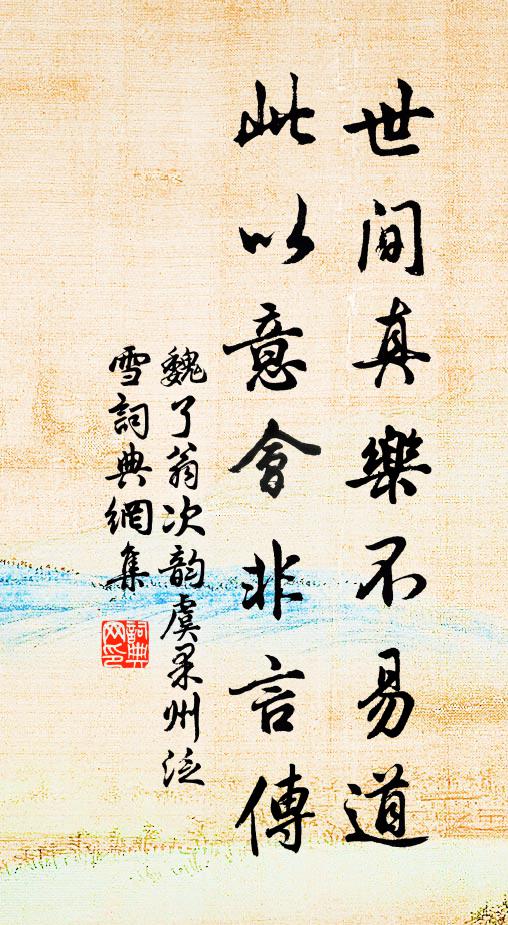 世間真樂不易道
此以意會非言傳
魏了翁次韵虞果州泛
雪詞典網集
詞典網印